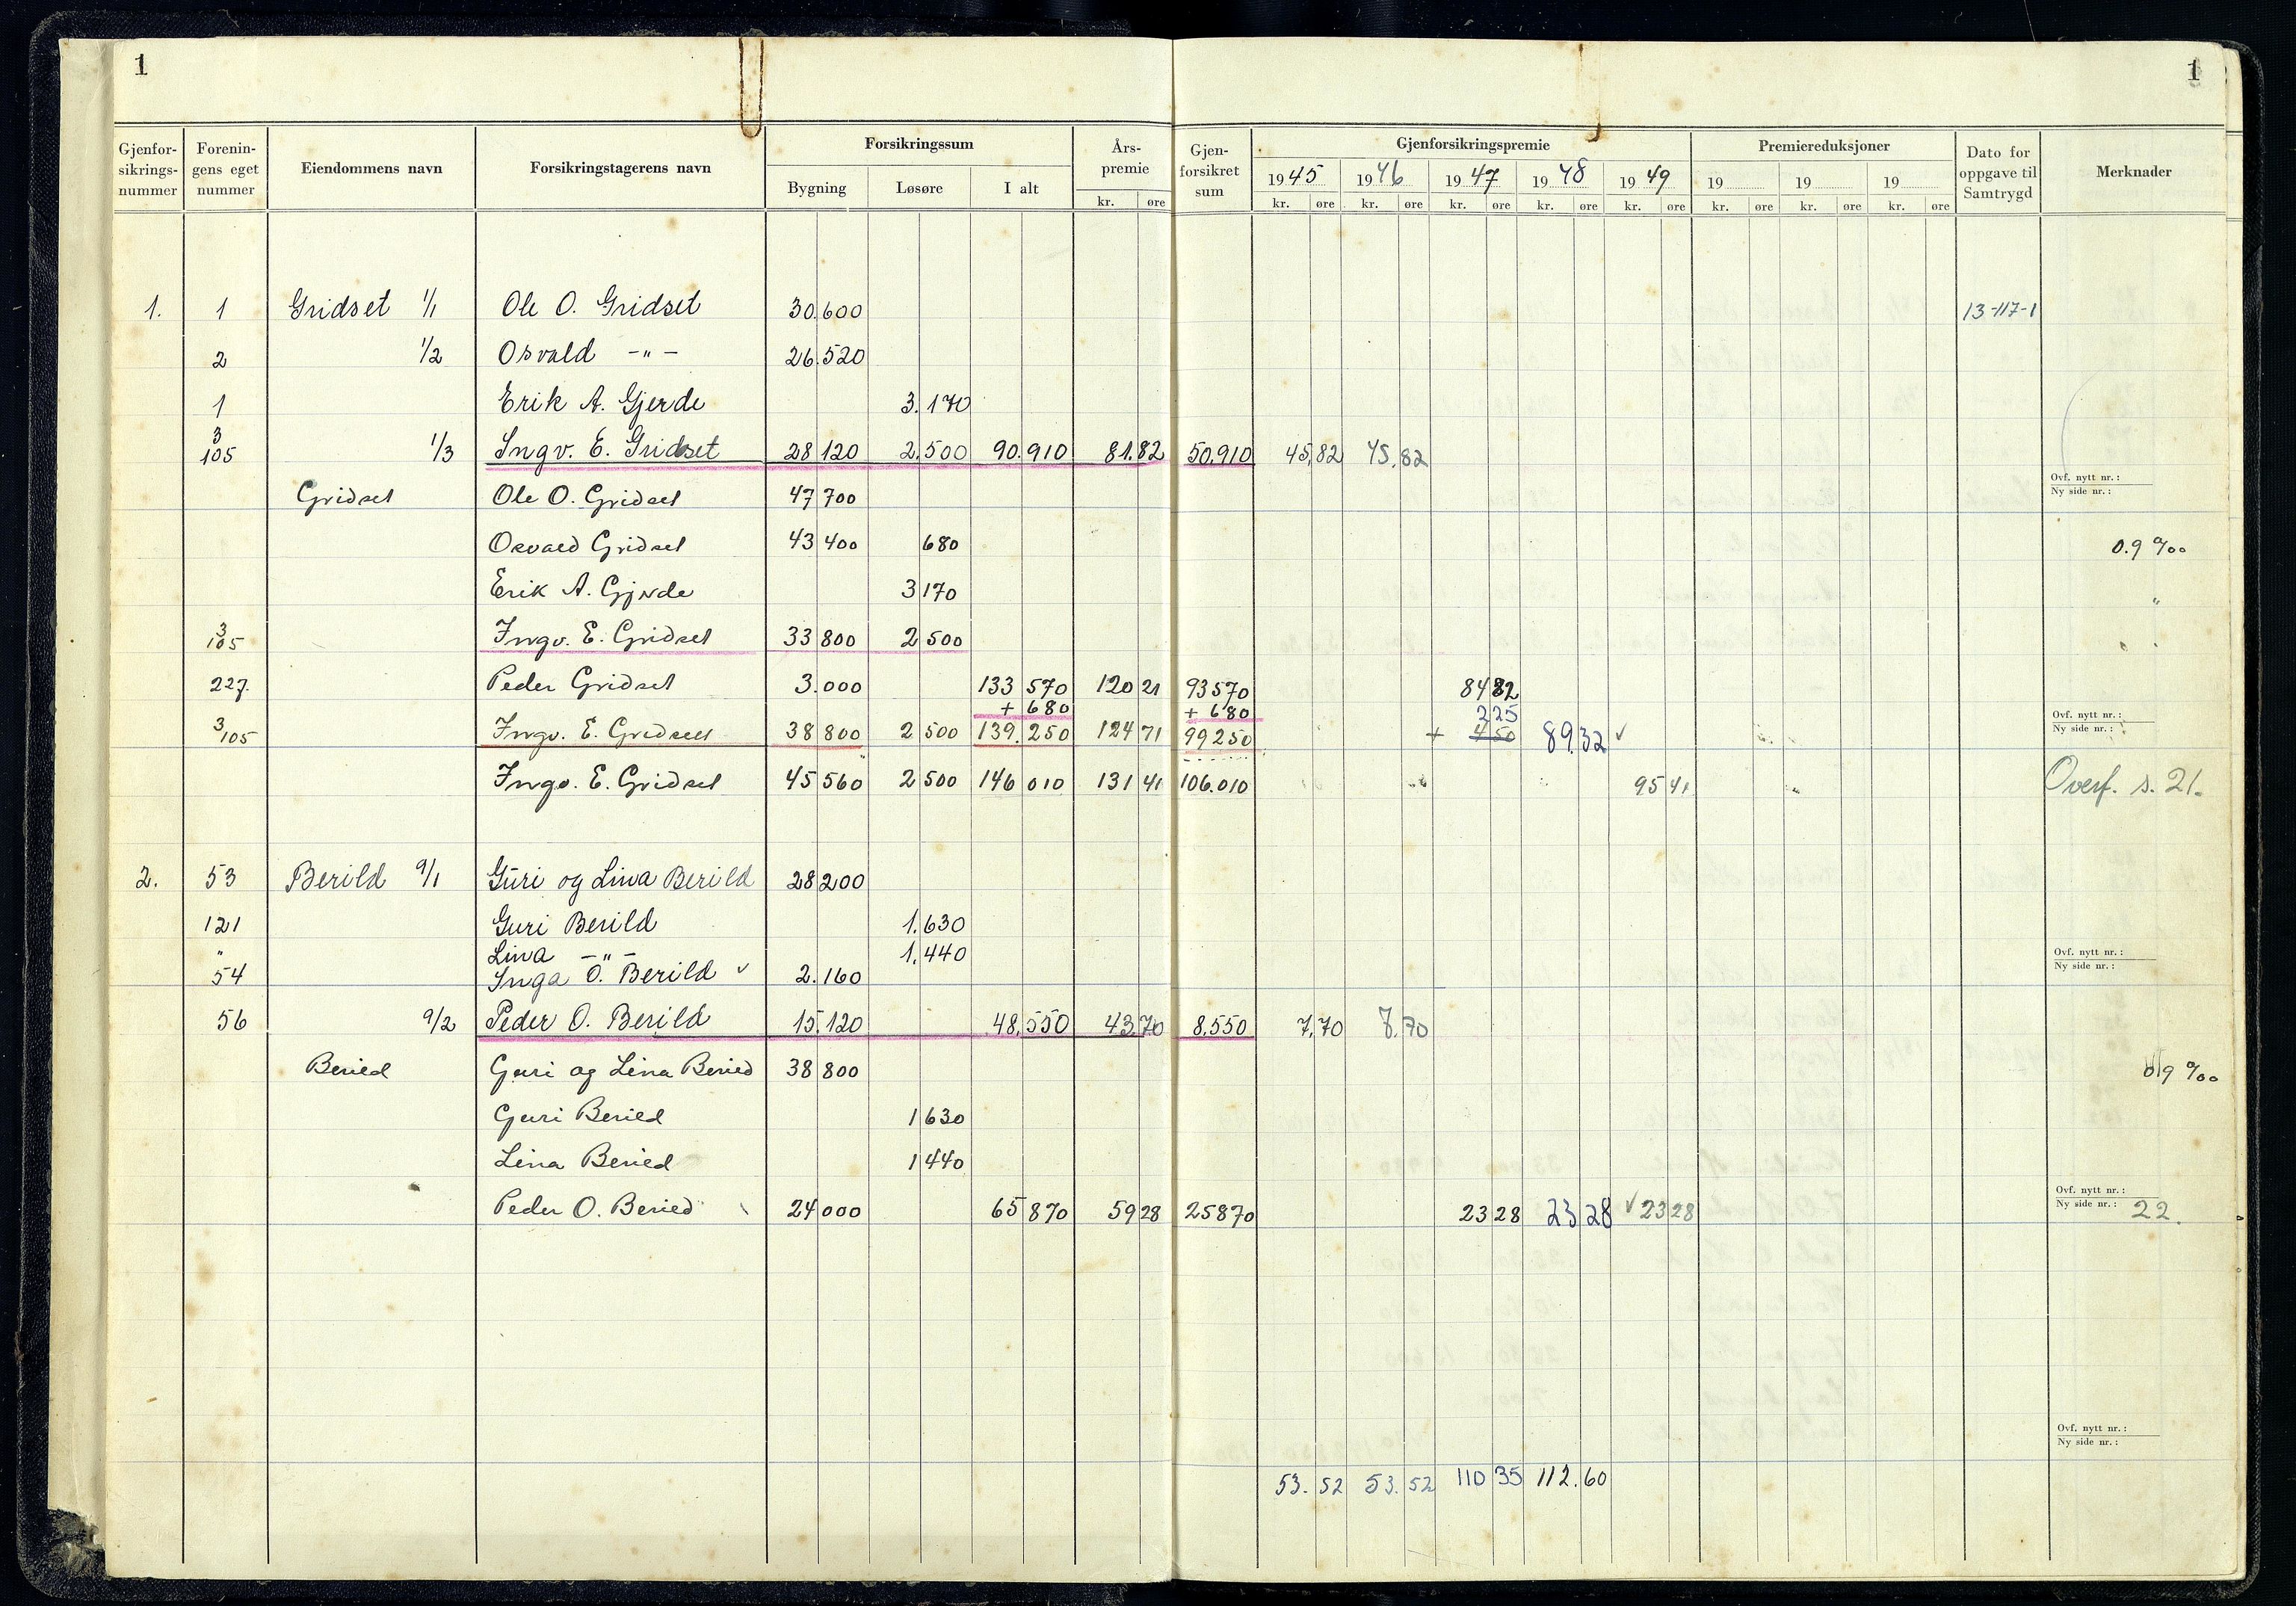 1 1
Gjenfor-sikrings-nummer Forenin-gens eget nummer Eiendommens navn Forsikringstagerens navn Forsikringssum Bygning Løsøre I alt Års-premie kr. øre Gjen-forsikret sum Gjenforsikringspremie 1945 1946 1947 1948 1949 kr. øre kr. øre kr. øre kr. øre kr. øre Premiereduksjoner 19 19 19 kr. øre kr. øre kr. øre Dato for oppgave til Samtrygd Merknader
1. 1 Gridset 1/1 Ole O. Gridset 30.600 13-117-1
2 1/2 Osvald -"- 26.520
1 Erik A. Gjerde 3.170
3/105 1/3 Ingv. E. Gridset 28 120 2.500 90.910 81.82 50.910 45,82 45,82
Ovf. nytt nr.:
Ny side nr.:
Gridset Ole O. Gridset 47 700
Osvald Gridset 43 400 680 0.9 ‰
Erik A. Gjerde 3 170 "
3/105 Ingv. E. Gridset 33 800 2 500 "
227. Peder Gridset 3.000 133 570 120 21 93570 84 82
+ 680 + 680 225
3/105 Ingv. E. Gridset 38 800 2 500 139.250 124 71 99250 + 450 89,32 ✓
Ovf. nytt nr.:
Ny side nr.:
Ingv. E. Gridset 45 560 2 500 146 010 131 41 106.010 95 41 Overf. s. 21.
2. 53 Berild 9/1 Guri og Lina Berild 28 200
121 Guri Berild 1.630
" Lina -"- 1.440
54 Inga O. Berild ✓ 2.160
Ovf. nytt nr.:
Ny side nr.:
56 9/2 Peder O. Berild 15.120 48,550 43.70 8,550 7,70 7,70
Berild Guri og Lina Berild 38 800 0,9 ‰
Guri Berild 1 630
Lina Berild 1 440
Peder O. Berild 24 000 65 870 59 28 25870 23 28 23 28 ✓ 23 28
Ovf. nytt nr.:
Ny side nr.: 22.
Ovf. nytt nr.:
Ny side nr.:
53.52 53.52 110 35 112.60